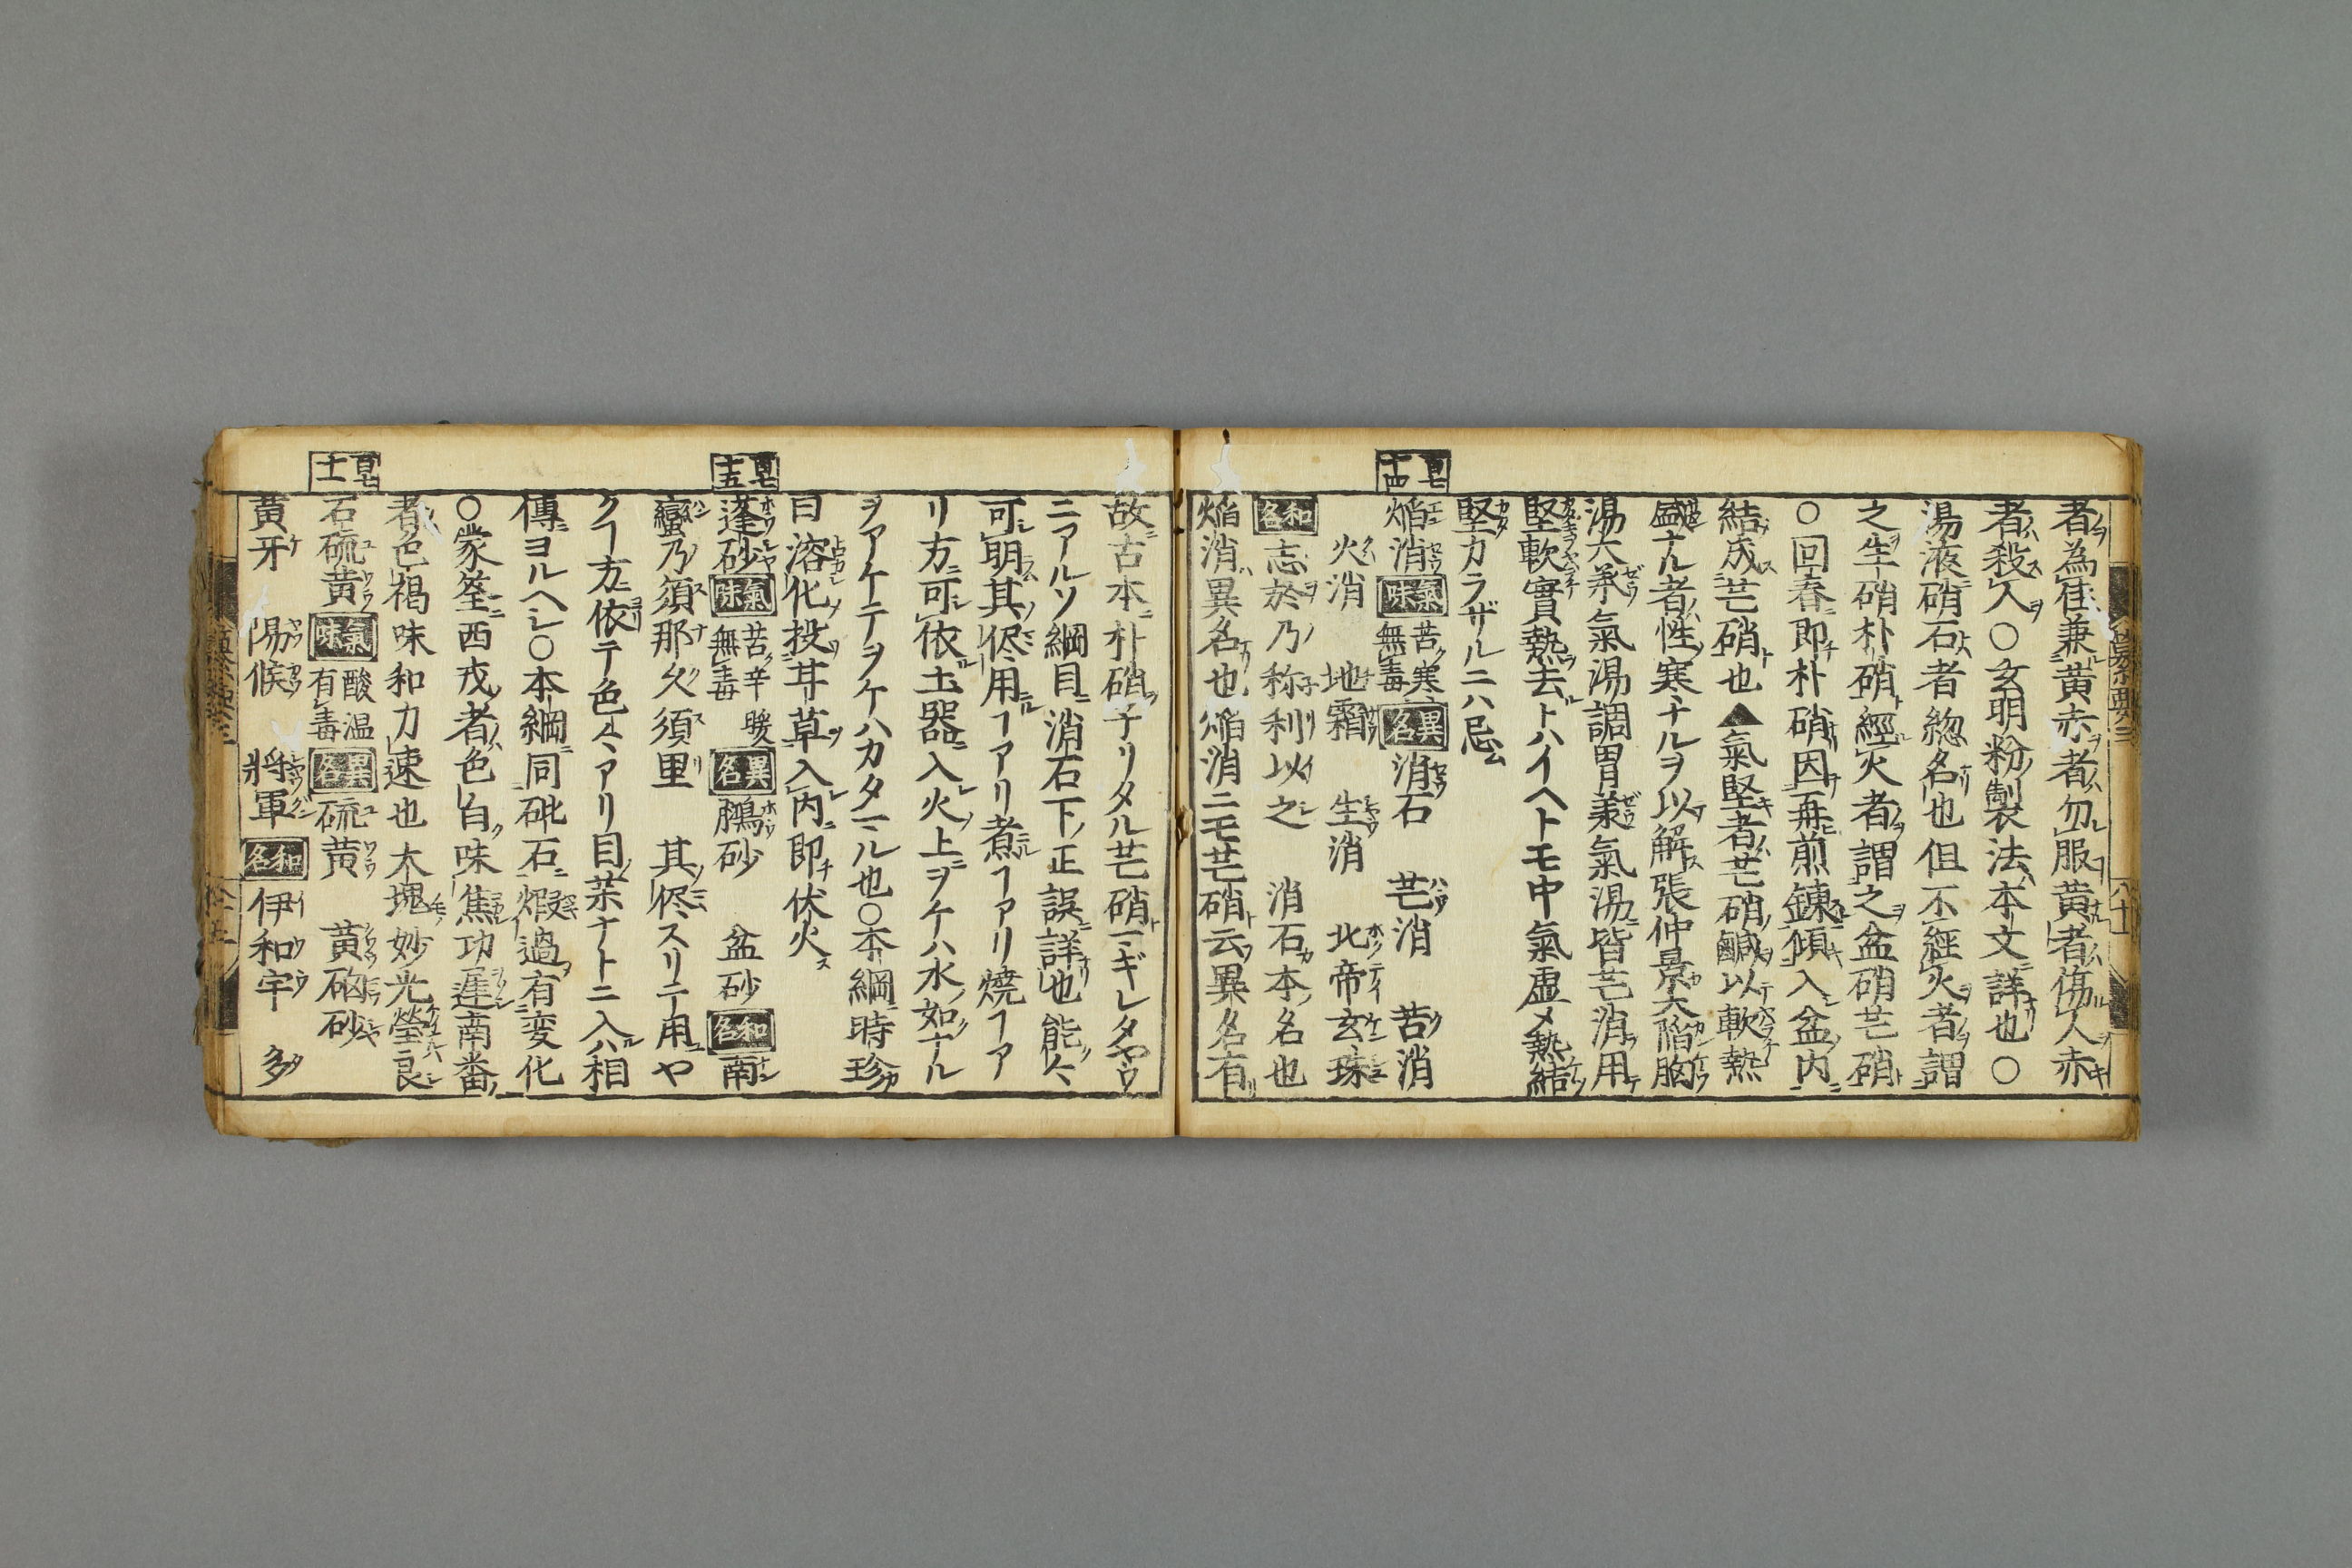 者為佳兼黄赤者勿服黄者傷人赤
者殺人〇玄明粉製法本文詳也〇
湯液硝石者総名也但不經火者謂
之生硝朴硝經火者謂之盆硝芒硝
〇回春即朴硝因再煎錬傾入盆内
結成芒硝也▲氣堅者芒硝鹹以軟熱
盛ナル者性寒ナルヲ以解張仲景大陥胸
湯大承氣湯調胃兼氣湯皆芒消用
堅軟實熱去トハイヘトモ中氣虚メ熱結
堅カラザルニハ忌
百七十四
焔消 氣味 苦寒無毒 異名 消石 芒消 苦消
火消 地霜 生消 北帝玄珠
和名 志於乃称利以之 消石本名也
焔消異名也焔消ニモ芒硝云異名有
故古本朴硝チリタル芒硝マギレタヤウ
ニアルソ綱目消石下正誤詳也能々
可明其侭用ヿアリ煮ヿアリ焼ヿア
リ方可依土器入火上ヲケハ水如ナル
ヲアケテヲケハカタマル也〇本綱時珍
曰溶化投甘草入内即伏火
百七十五
蓬砂 氣味 苦辛暖無毒 異名 鵬砂 盆砂 和名 南
蠻乃須那久須里 其侭スリテ用ヤ
クヿ方依テ色々アリ目茶ナトニ入相
傳ヨルヘシ〇本綱同砒石煆過有変化
〇蒙筌西戎者色白味焦功遅南番
者色褐味和力速也大塊妙光瑩良
石硫黄 氣味 酸温有毒 異名 硫黄 黄硇砂
黄牙 陽候 將軍 和名 伊和宇 多